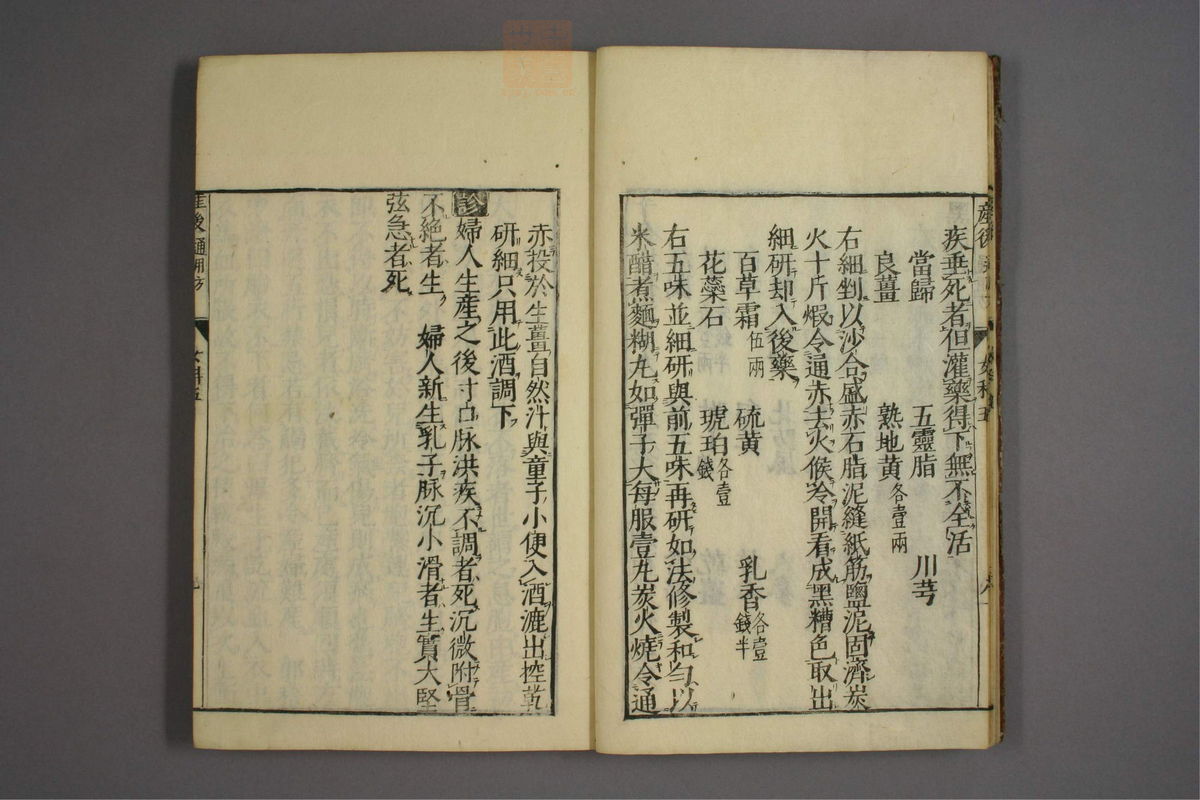 疾垂死者但灌藥得下無不全活
當歸 五靈脂 川芎
良薑 熟地黃各壹兩
右細剉以沙合盛赤石脂泥縫紙筋鹽泥固濟炭
火十斤煆令通赤去火候冷開看成黑糟色取出
細研却入後藥
百草霜伍兩 硫黄 乳香各壹錢半
花蘂石 琥珀各壹錢
右五味並細研與前五味再研如法修製和勻以
米醋煮麵糊丸如彈子大每服壹丸炭火燒令通
赤投於生薑自然汁與童子小便入酒漉出控乾
研細只用此酒調下
診婦人生産之後寸口脉洪疾不調者死沉微附骨
不絶者生 婦人新生乳子脉沉小滑者生實大堅
弦急者死